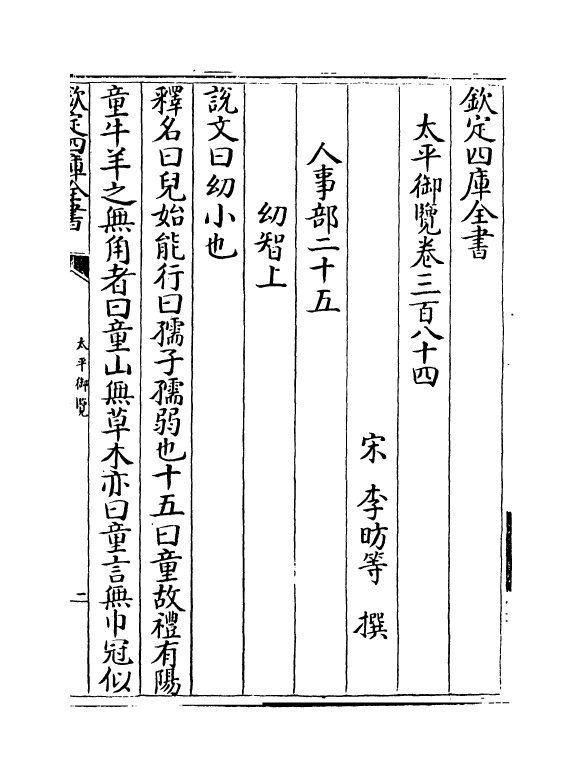 欽定四庫全書
太平御覽卷三百八十四
宋 李昉等 撰
人事部二十五
幼智上
說文曰幼小也
釋名曰兒始能行曰孺子孺弱也十五曰童故禮有陽
童牛羊之無角者曰童山無草木亦曰童言無巾冠似
欽定四庫全書
太平御覽
二